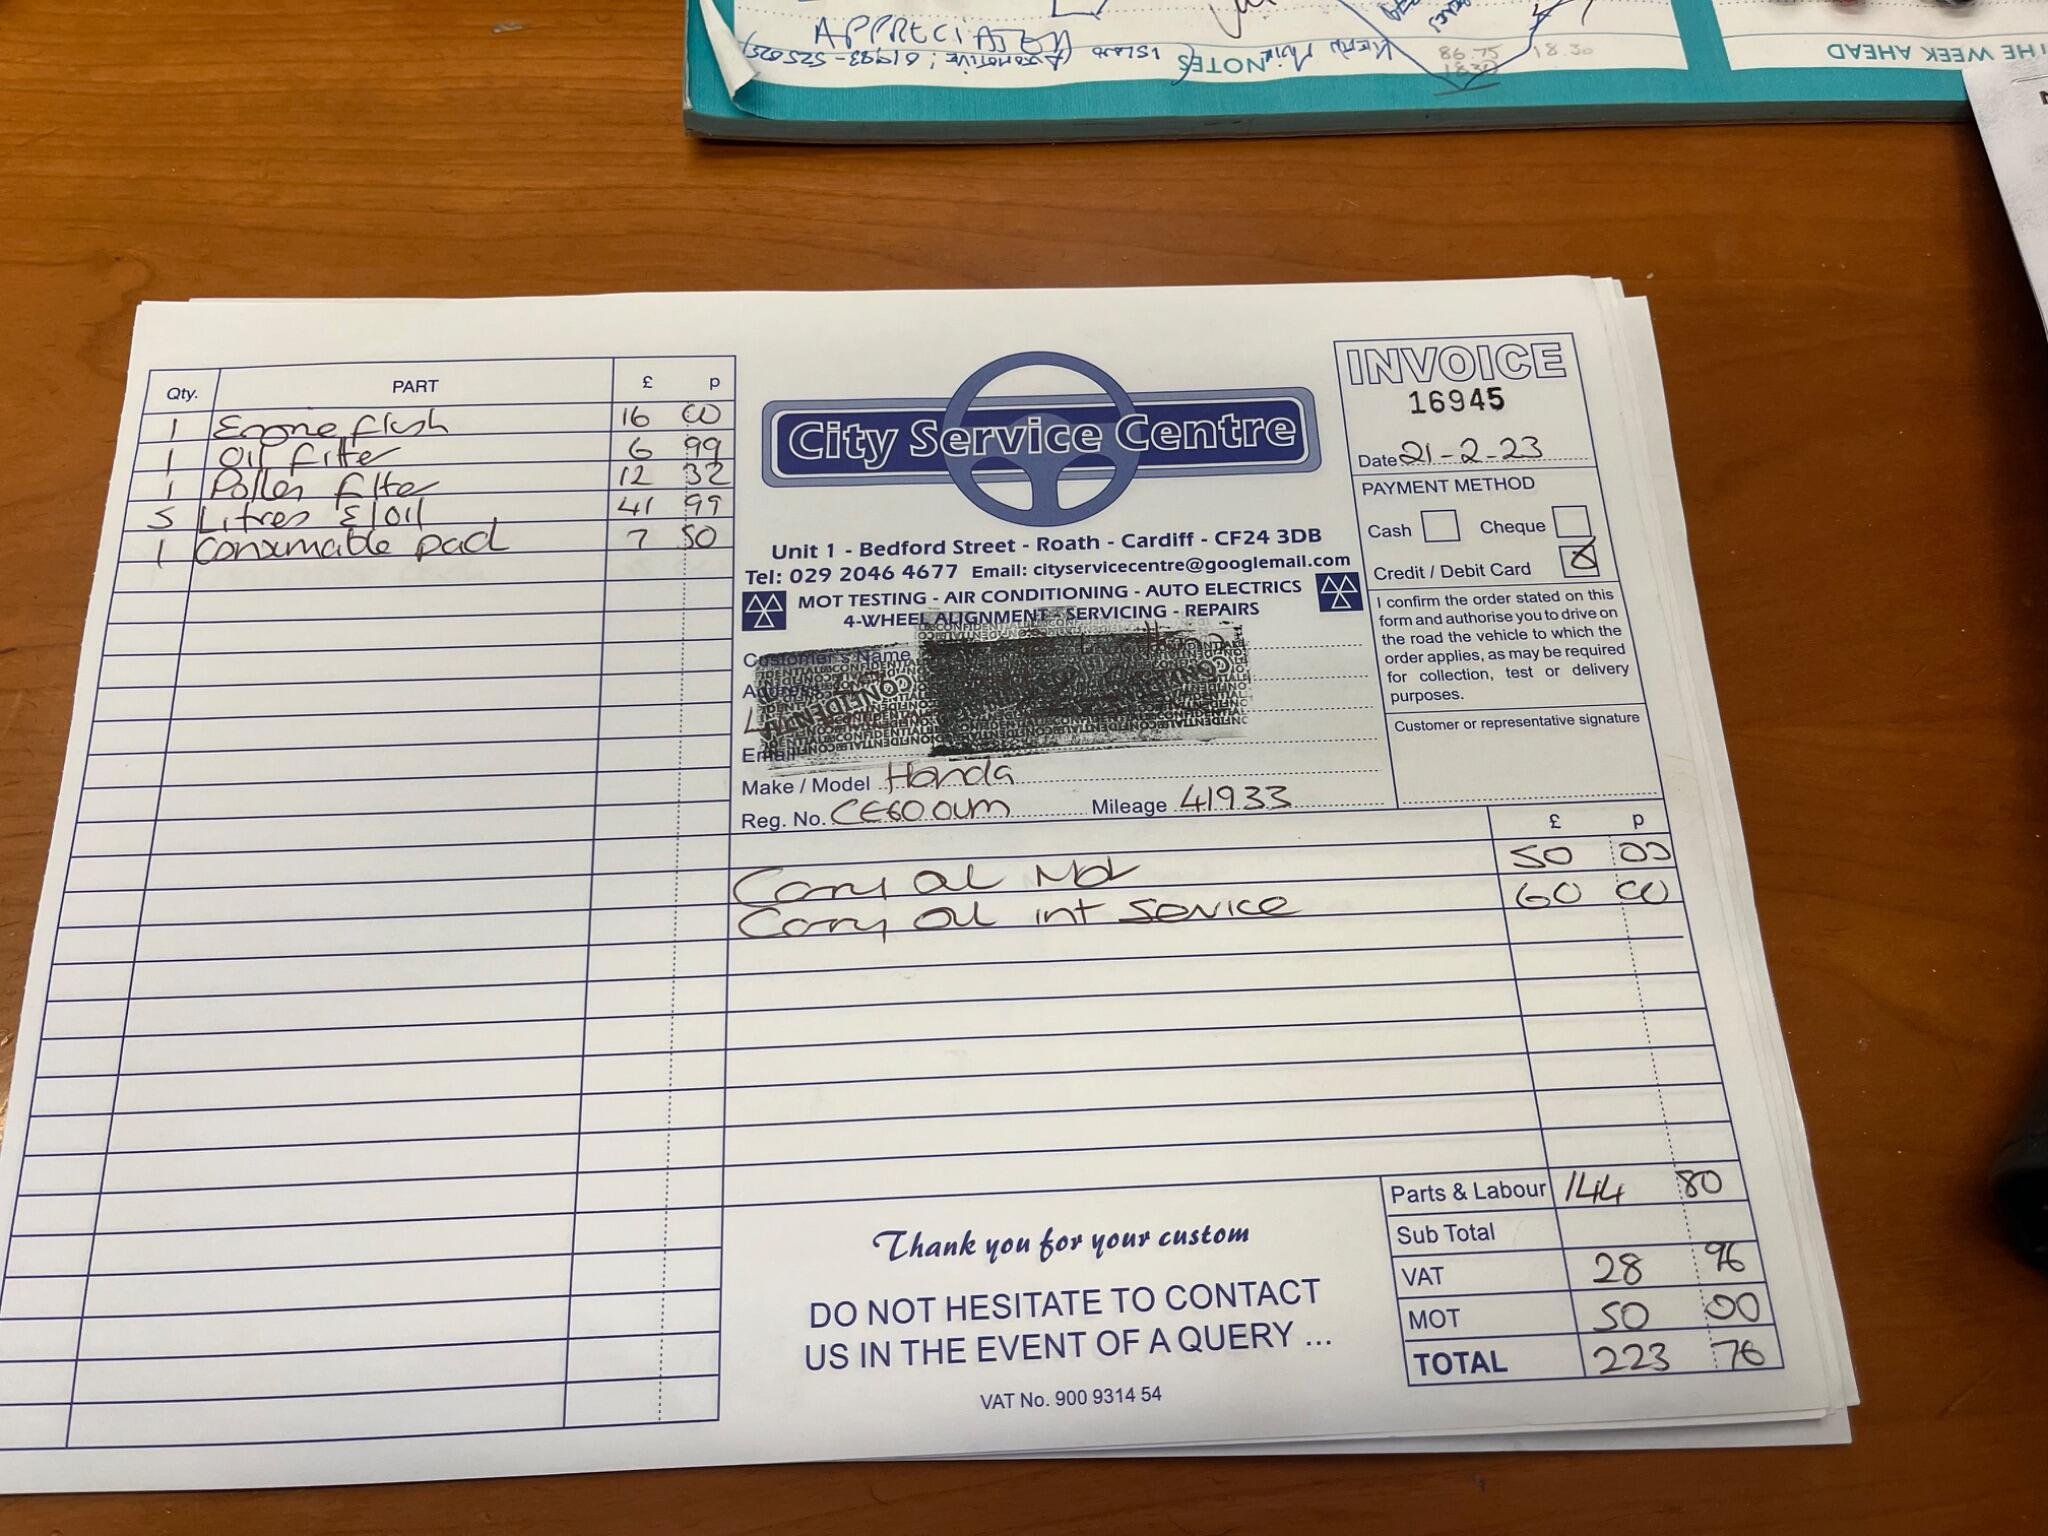 NOTES
86.75
18.30
18.30
THE WEEK AHEAD
Qty. PART £ p
1 Engine flush 16 00
1 Oil filter 6 99
1 Pollen filter 12 32
5 Litres E/Oil 41 99
1 Consumable pad 7 50
City Service Centre
Unit 1 - Bedford Street - Roath - Cardiff - CF24 3DB
Tel: 029 2046 4677 Email: cityservicecentre@googlemail.com
MOT TESTING - AIR CONDITIONING - AUTO ELECTRICS
4-WHEEL ALIGNMENT - SERVICING - REPAIRS
Customer's Name
Address
Email
Make / Model Honda
Reg. No. CE60 OUM Mileage 41933
INVOICE
16945
Date 21-2-23
PAYMENT METHOD
Cash Cheque
Credit / Debit Card
I confirm the order stated on this
form and authorise you to drive on
the road the vehicle to which the
order applies, as may be required
for collection, test or delivery
purposes.
Customer or representative signature
£ p
Carry out Mot 50 00
Carry out int Service 60 00
Parts & Labour 144 80
Sub Total
VAT 28 96
MOT 50 00
TOTAL 223 76
Thank you for your custom
DO NOT HESITATE TO CONTACT
US IN THE EVENT OF A QUERY ...
VAT No. 900 9314 54